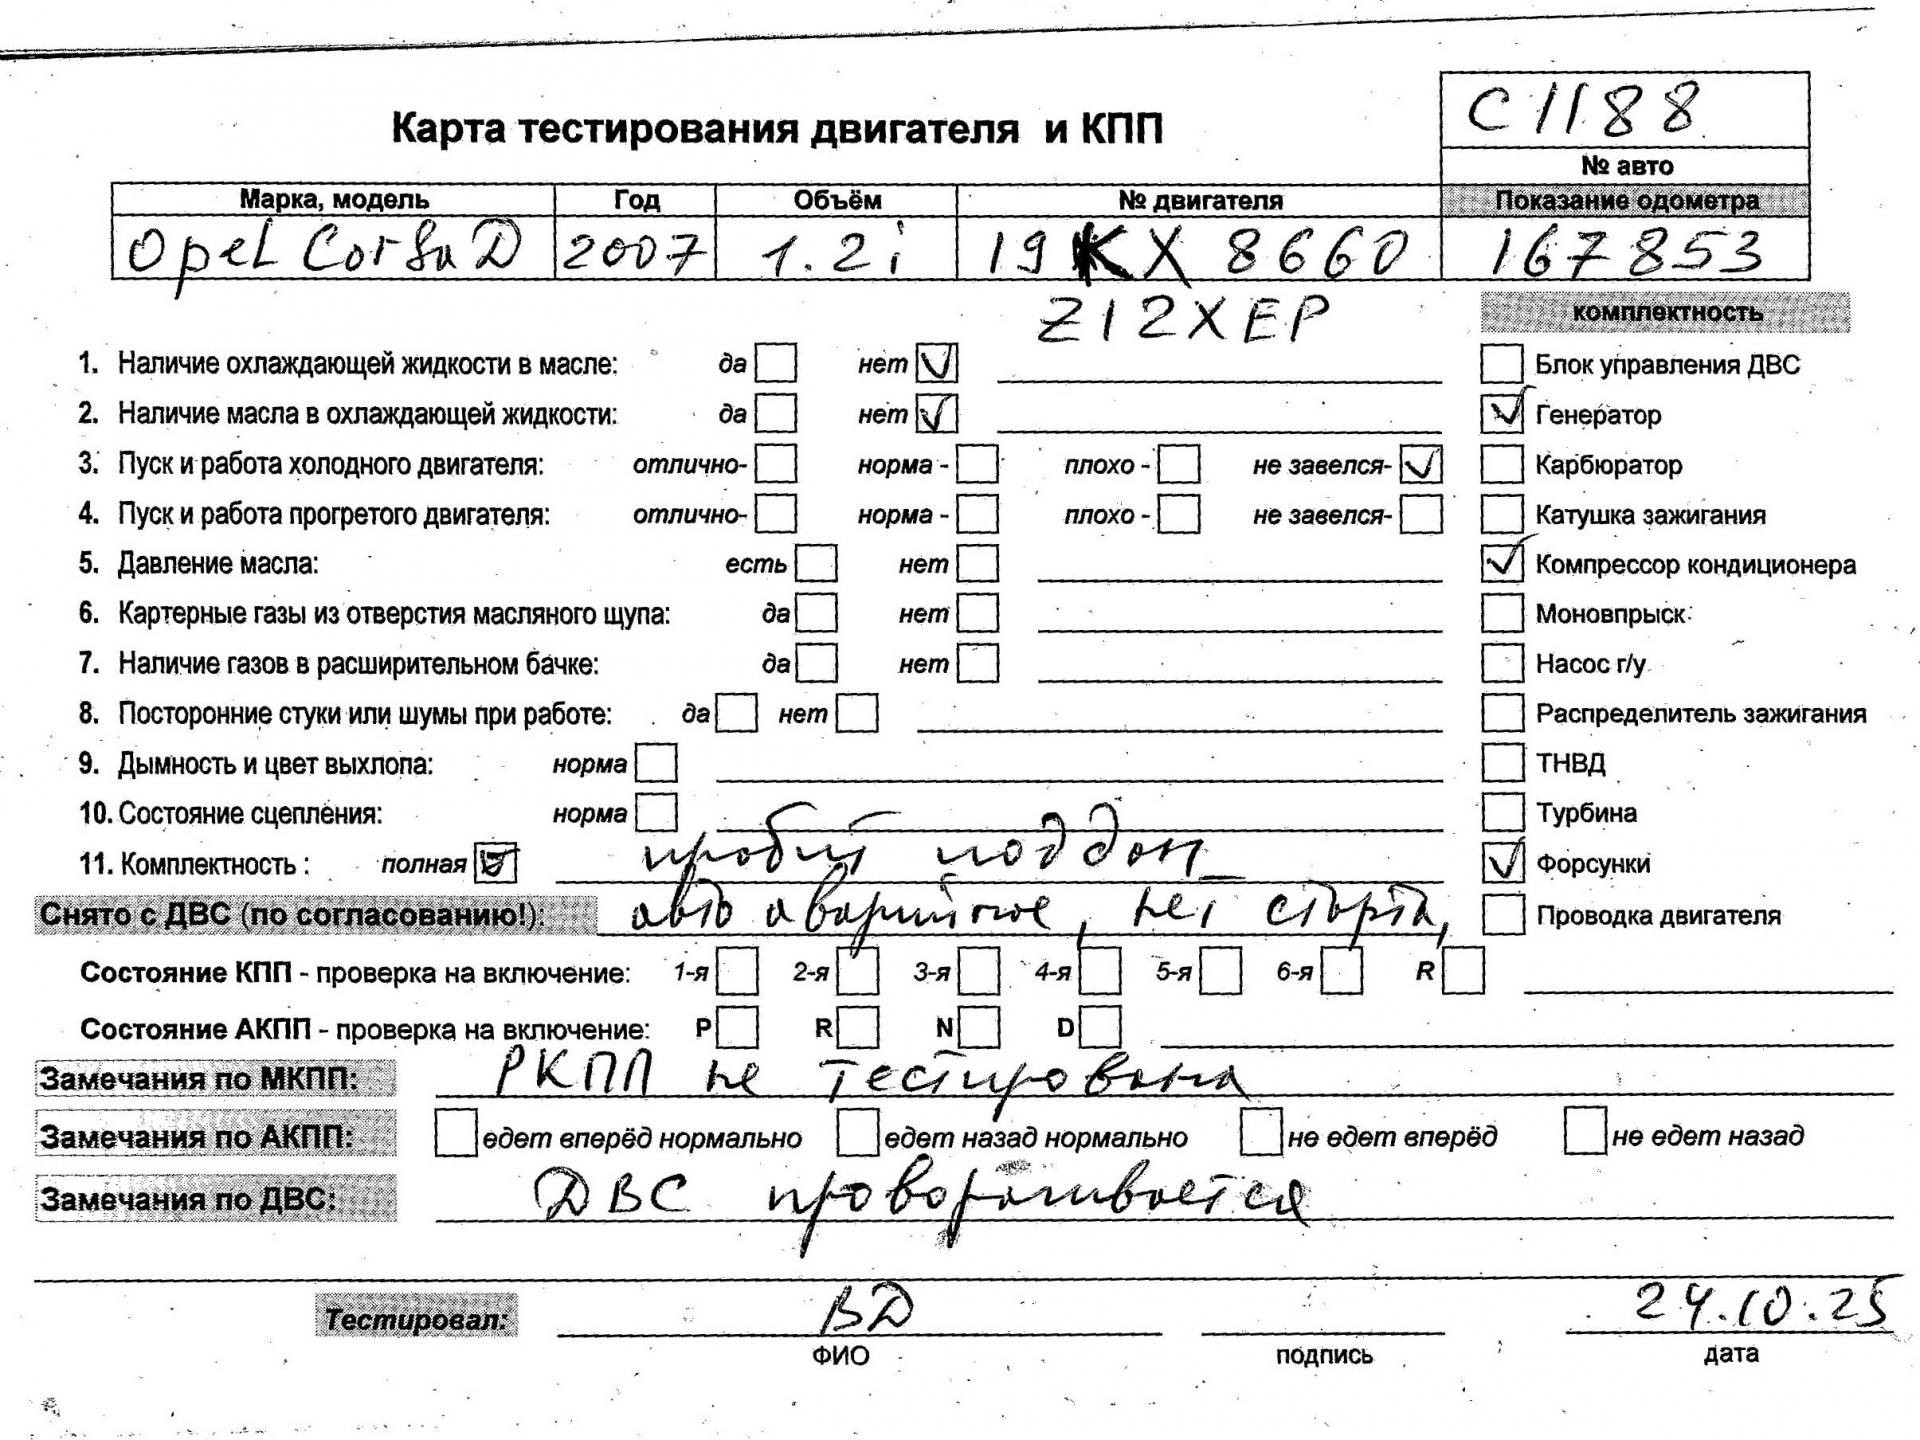 С1188
Карта тестирования двигателя и КПП
№ авто
Марка, модель Год Объём № двигателя Показание одометра
Opel Corsa D 2007 1.2i 19KX8660 167853
Z12XEP
комплектность
1. Наличие охлаждающей жидкости в масле: да нет Блок управления ДВС
2. Наличие масла в охлаждающей жидкости: да нет Генератор
3. Пуск и работа холодного двигателя: отлично- норма - плохо - не завелся- Карбюратор
4. Пуск и работа прогретого двигателя: отлично- норма - плохо - не завелся- Катушка зажигания
5. Давление масла: есть нет Компрессор кондиционера
6. Картерные газы из отверстия масляного щупа: да нет Моновпрыск
7. Наличие газов в расширительном бачке: да нет Насос г/у
8. Посторонние стуки или шумы при работе: да нет Распределитель зажигания
9. Дымность и цвет выхлопа: норма ТНВД
10. Состояние сцепления: норма Турбина
11. Комплектность : полная пробит поддон Форсунки
Снято с ДВС (по согласованию!): авто аварийное, нет старта, Проводка двигателя
Состояние КПП - проверка на включение: 1-я 2-я 3-я 4-я 5-я 6-я R
Состояние АКПП - проверка на включение: P R N D
Замечания по МКПП: РКПП не тестирована
Замечания по АКПП: едет вперёд нормально едет назад нормально не едет вперёд не едет назад
Замечания по ДВС: ДВС проворачивается
Тестировал: ВД 24.10.25
ФИО подпись дата